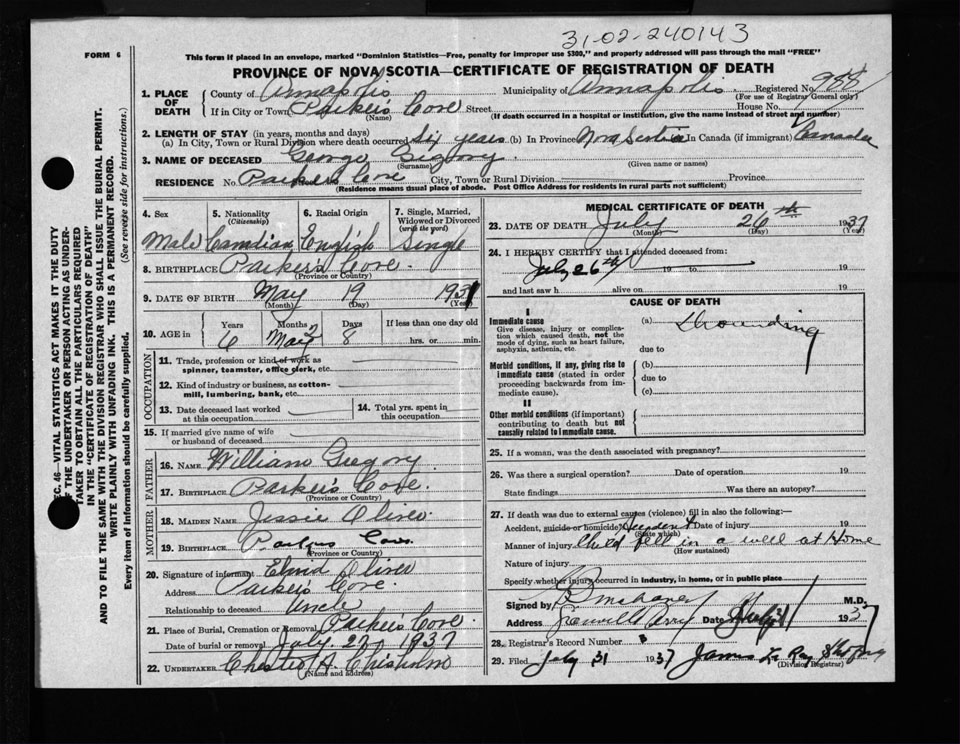 31-02-240143
FORM 6
This form if placed in an envelope, marked "Dominion Statistics—Free, penalty for improper use $300," and properly addressed will pass through the mail "FREE"
PROVINCE OF NOVA SCOTIA—CERTIFICATE OF REGISTRATION OF DEATH
1. PLACE OF DEATH
County of Annapolis Municipality of Annapolis Registered No. 988
(For use of Registrar General only)
If in City or Town Parker's Cove Street House No.
(Name) (If death occurred in a hospital or institution, give the name instead of street and number)
2. LENGTH OF STAY (in years, months and days)
(a) In City, Town or Rural Division where death occurred Six years (b) In Province Nova Scotia In Canada (if immigrant) Canada
3. NAME OF DECEASED George Gregory
(Surname) (Given name or names)
RESIDENCE No. Parker's Cove City, Town or Rural Division Province
(Residence means usual place of abode. Post Office Address for residents in rural parts not sufficient)
SEC. 46—VITAL STATISTICS ACT MAKES IT THE DUTY
OF THE UNDERTAKER OR PERSON ACTING AS UNDER-
TAKER TO OBTAIN ALL THE PARTICULARS REQUIRED
IN THE "CERTIFICATE OF REGISTRATION OF DEATH"
AND TO FILE THE SAME WITH THE DIVISION REGISTRAR WHO SHALL ISSUE THE BURIAL PERMIT.
WRITE PLAINLY WITH UNFADING INK. THIS IS A PERMANENT RECORD.
Every item of Information should be carefully supplied. (See reverse side for instructions.)
4. Sex 5. Nationality (Citizenship) 6. Racial Origin 7. Single, Married, Widowed or Divorced (write the word)
Male Canadian English Single
8. BIRTHPLACE Parker's Cove
(Province or Country)
9. DATE OF BIRTH May 19 1931
(Month) (Day) (Year)
10. AGE in Years Months Days If less than one day old
6 8 hrs. or min.
OCCUPATION
11. Trade, profession or kind of work as
spinner, teamster, office clerk, etc.
12. Kind of industry or business, as cotton-
mill, lumbering, bank, etc.
13. Date deceased last worked at this occupation 14. Total yrs. spent in this occupation
15. If married give name of wife
or husband of deceased
FATHER
16. NAME William Gregory
17. BIRTHPLACE Parker's Cove
(Province or Country)
MOTHER
18. MAIDEN NAME Jessie Oliver
19. BIRTHPLACE Parkers Cove
(Province or Country)
20. Signature of informant Oliver
Address Parkers Cove
Relationship to deceased Uncle
21. Place of Burial, Cremation or Removal Parker's Cove
Date of burial or removal July 27 1937
22. UNDERTAKER Chester A. Chisholm
(Name and address)
MEDICAL CERTIFICATE OF DEATH
23. DATE OF DEATH July 26th 1937
(Month) (Day) (Year)
24. I HEREBY CERTIFY that I attended deceased from:
July 26th 19 to 19
and last saw h alive on 19
CAUSE OF DEATH
I
Immediate cause (a) Drounding
Give disease, injury or complica-
tion which caused death, not the
mode of dying, such as heart failure,
asphyxia, asthenia, etc. due to
Morbid conditions, if any, giving rise to (b)
immediate cause (stated in order due to
proceeding backwards from im-
mediate cause). (c)
II
Other morbid conditions (if important)
contributing to death but not
causally related to immediate cause.
25. If a woman, was the death associated with pregnancy?
26. Was there a surgical operation? Date of operation 19
State findings Was there an autopsy?
27. If death was due to external causes (violence) fill in also the following:—
Accident, suicide or homicide? Accident Date of injury 19
(State which)
Manner of injury Child fell in a well at Home
(How sustained)
Nature of injury
Specify whether injury occurred in industry, in home, or in public place
Signed by M.D.
Address Date 1937
28. Registrar's Record Number
29. Filed July 31 1937 James
(Division Registrar)